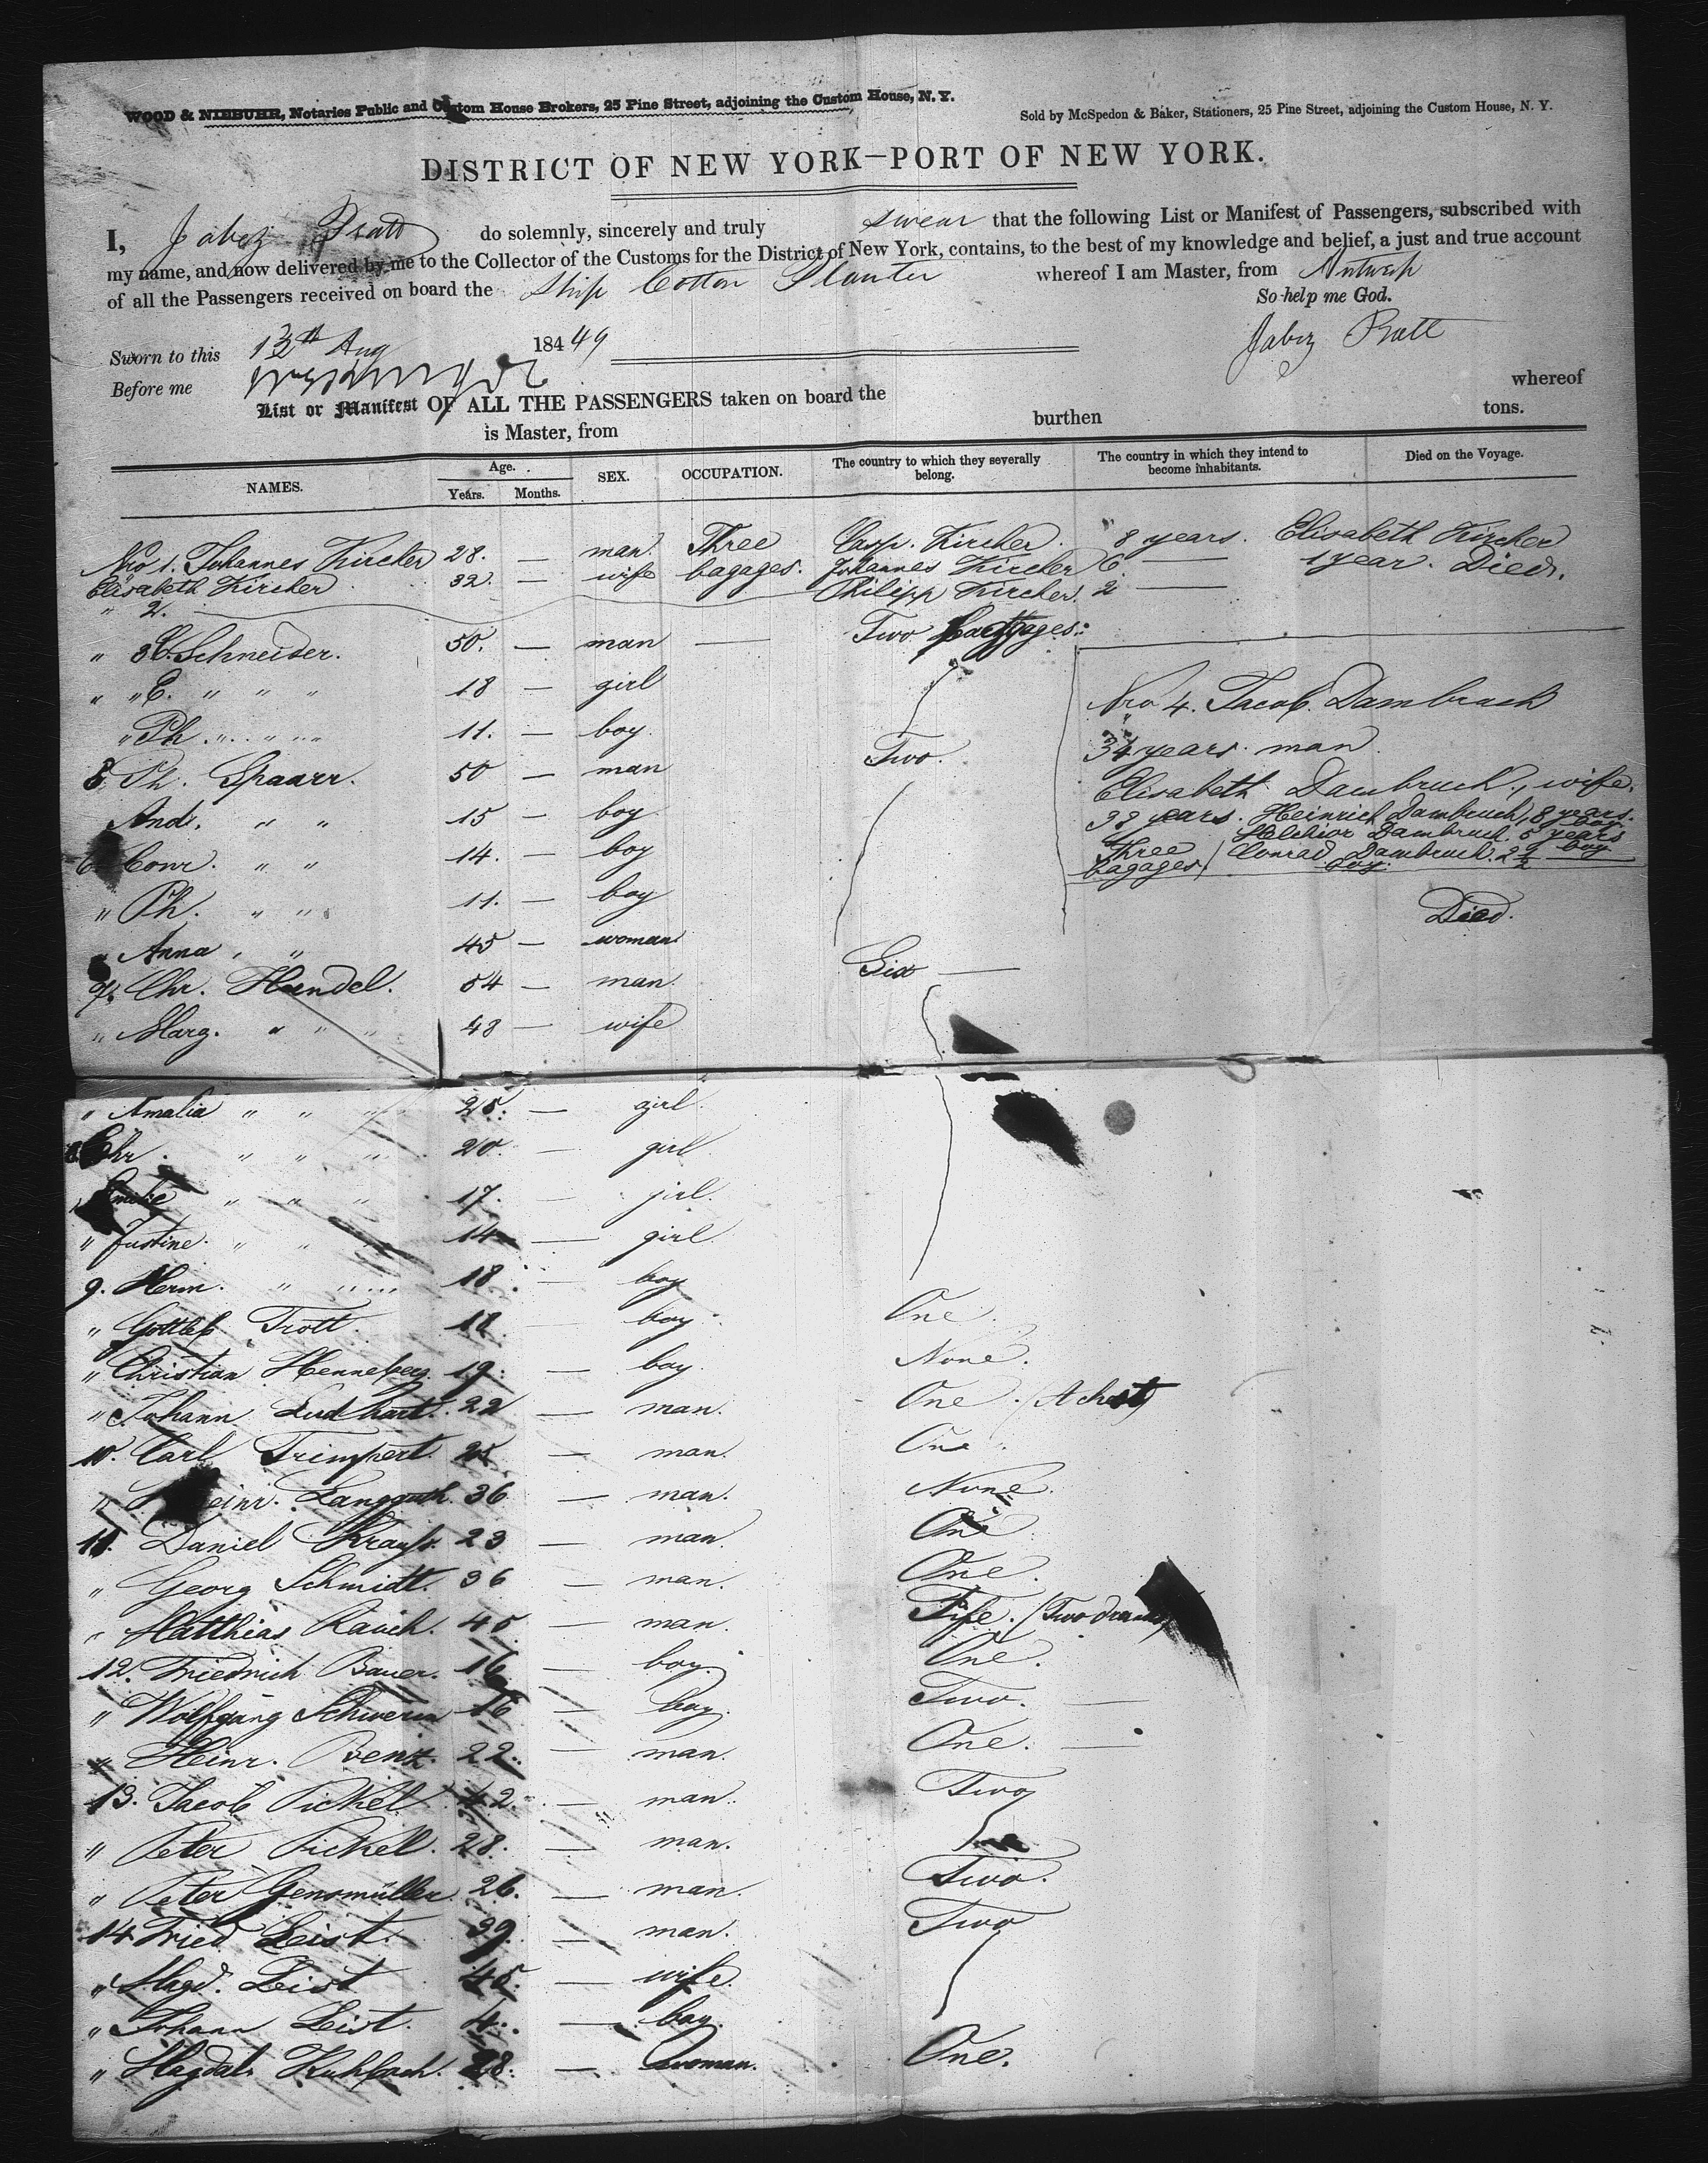 WOOD & NIEBUHR, Notaries Public and Custom House Brokers, 25 Pine Street, adjoining the Custom House, N. Y.
Sold by McSpedon & Baker, Stationers, 25 Pine Street, adjoining the Custom House, N. Y.
DISTRICT OF NEW YORK—PORT OF NEW YORK.
I, Jabez Pratt do solemnly, sincerely and truly swear that the following List or Manifest of Passengers, subscribed with
my name, and now delivered by me to the Collector of the Customs for the District of New York, contains, to the best of my knowledge and belief, a just and true account
of all the Passengers received on board the Ship Cotton Planter whereof I am Master, from Antwerp
So help me God.
Sworn to this 13th Aug 184 49
Jabez Pratt
Before me
List or Manifest OF ALL THE PASSENGERS taken on board the whereof
is Master, from burthen tons.
NAMES. Age. Years. Months. SEX. OCCUPATION. The country to which they severally belong. The country in which they intend to become inhabitants. Died on the Voyage.
Nro 1. Johannes Kircher 28. — man. Three Casp. Kircher. 8 years. Elisabeth Kircher
Elisabeth Kircher 32. — wife bagages. Johannes Kircher 6 — 1 year. Died.
" 2. Philipp Kircher. 2 —
" 3 C. Schneider. 50. — man — Two baggages.
" " E. " " " 18 — girl
" Ph. " " " 11. — boy.
5 Ph. Spaarr. 50 — man Two.
And. " " 15 — boy
6 Conr. " " 14. — boy
" Ph. " " 11. — boy
" Anna " " 45 — woman
Nro 4. Jacob Dambruch
34 years. man.
Elisabeth Dambruch., wife.
38 years. Heinrich Dambruch, 8 years. boy
Melchior Dambruch. 5 years boy
Three bagages / Conrad Dambruch. 2 1/2 boy.
Died.
7. Chr. Handel. 54 — man. Six —
" Marg. " " " 48 — wife
" Amalia " " " 25. — girl.
8 Chr. " " " 20. — girl
" Emilie " " " 17. — girl.
" Justine. " " " 14 — girl.
9. Herm. " " 18. — boy
" Gottleb Trott. 18. boy. One.
" Christian Henneberg. 19. — boy. None.
" Johann Ludhart. 22 — man. One. / A chest
10. Carl Trimpert. 25 — man. One.
" Heinr. Langguth. 36 — man. None.
11. Daniel Krauss. 23 — man. One
" Georg Schmidt. 36 — man. One.
" Matthias Rauch. 45 — man. Fife. / Two
12. Friedrich Bauer. 16 — boy. One.
" Wolfgang Schwerin 16 — boy. Two. —
" Heinr. Benz. 22. — man. One. —
13. Jacob Pickel. 42. — man. Two
" Peter Pickel. 28. — man.
" Peter Gensmüller 26. — man. Two.
14 Fried Leist. 39. — man. Two
" Magd. Leist 45. — wife.
" Johann Leist. 4. — boy.
" Magdal. Kuhbach. 28. — woman. One.